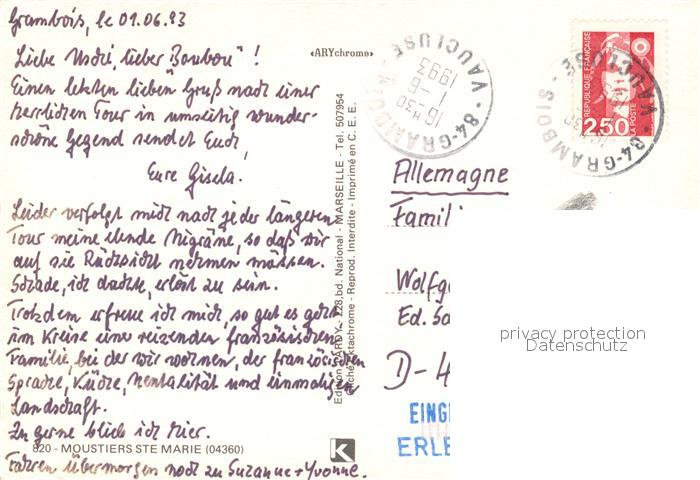 Grambois, le 01.06.93
Liebe Andrè, lieber "Boubou"!
Einen letzten lieben Gruß nach einer
herrlichen Tour in umseitig wunder-
schöne Gegend sendet Euch,
Eure Gisela.
Leider verfolgt mich nach jeder längeren
Tour meine elende Migräne, so daß wir
auf sie Rücksicht nehmen müssen.
Schade, ich dachte, erlöst zu sein.
Trotzdem erfreue ich mich, so gut es geht
im Kreise einer reizenden französischen
Familie, bei der wir wohnen, der französischen
Sprache, Küche, Mentalität und einmaligen
Landschaft.
Zu gerne blieb ich hier.
820 - MOUSTIERS STE MARIE (04360)
Fahren übermorgen noch zu Suzanne + Yvonne.
«ARYchrome»
Edition "ARDY" - 228, bd. National - MARSEILLE - Tel. 507954
Cliché Ektachrome - Reprod. Interdite - Imprimé en C.E.E.
K
84-GRAMBOIS
VAUCLUSE
16 H 30
1 - 6
1993
REPUBLIQUE FRANÇAISE
2,50
LA POSTE
84-GRAMBOIS -
VAUCLUSE
Allemagne
Famili
Wolfg
Ed. Sc
D-4
EING
ERLE
privacy protection
Datenschutz